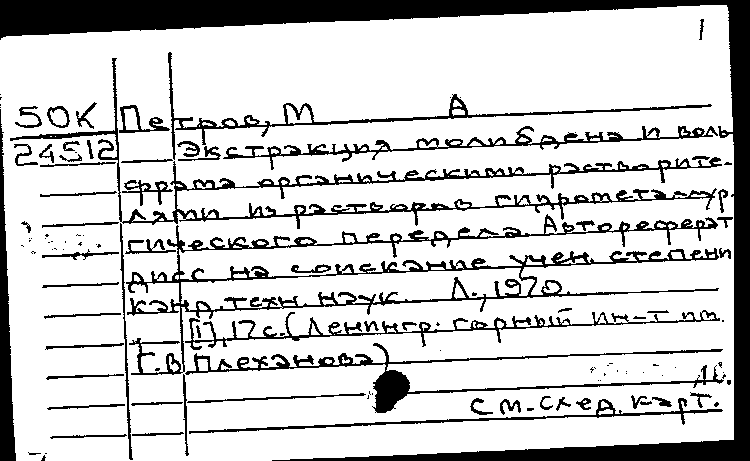 1
50К Петров, М А
24512 Экстракция молибдена и воль
фрама органическими растворите-
лями из растворов гидрометаллур
гического передела. Автореферат
дисс. на соискание учен. степени
канд. техн. наук. Л., 1970.
[1], 17 с. (Ленингр. горный ин-т им.
Г.В Плеханова)
см. след. карт.